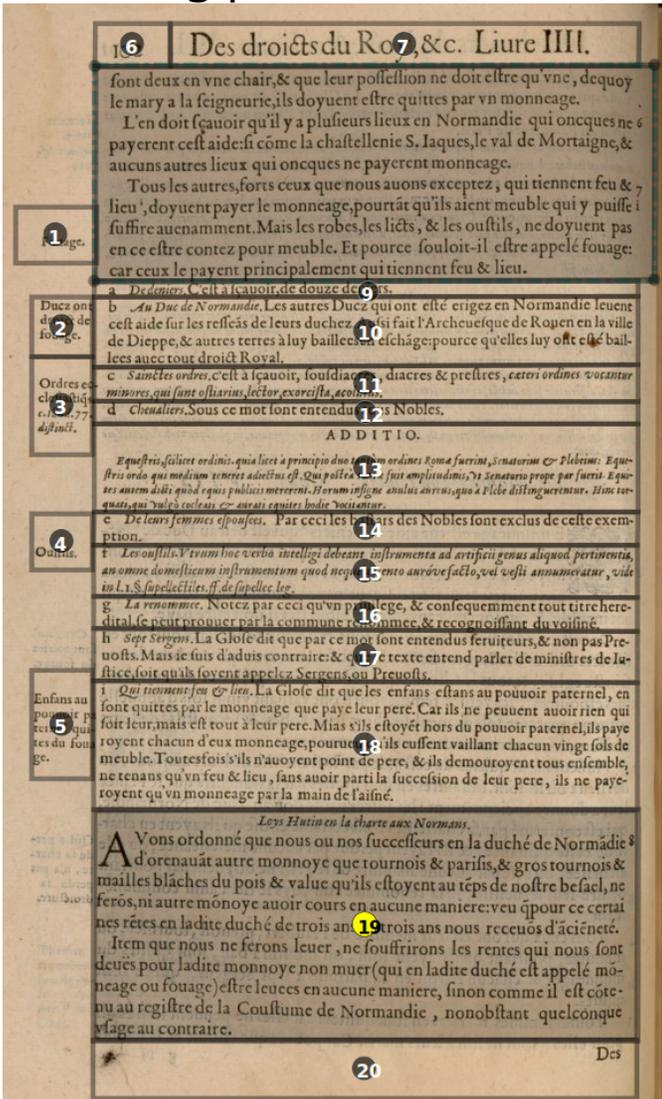 Des droicts du Roy,&c. Liure IIII.
sont deux en vne chair,& que leur possession ne doit estre qu'vne, dequoy
le mary a la seigneurie,ils doyuent estre quittes par vn monneage.
L'en doit sçauoir qu'il y a plusieurs lieux en Normandie qui oncques ne 6
payerent cest aide:si cōme la chastellenie S. Iaques,le val de Mortaigne,&
aucuns autres lieux qui oncques ne payerent monneage.
Tous les autres,fors ceux que nous auons exceptez, qui tiennent feu & 7
lieu¹,doyuent payer le monneage,pourtāt qu'ils aient meuble qui y puisse i
suffire auenamment.Mais les robes,les licts, & les oustils, ne doyuent pas
en ce estre contez pour meuble. Et pource souloit-il estre appelé fouage:
car ceux le payent principalement qui tiennent feu & lieu.
1
6
7
9
a De deniers. C'est à sçauoir,de douze
Ducz ont
2
b Au Duc de Normandie. Les autres Ducz qui ont esté erigez en Normandie leuent
10
cest aide sur les resseās de leurs duchez fait l'Archeuesque de Rouen en la ville
de Dieppe,& autres terres à luy eschāge:pource qu'elles luy ont esté bail-
lees auec tout droict Royal.
Ordres
3
c. 77.
distinct.
11
c Sainctes ordres.c'est à sçauoir, diacres & prestres, cæteri ordines vocantur
minores,qui sunt ostiarius,lector,exorcista,
12
d Cheualiers.Sous ce mot sont Nobles.
ADDITIO.
13
Equestris,scilicet ordinis.quia licet à principio duo ordines Romæ fuerint,Senatorius & Plebeius: Eque-
stris ordo qui medium teneret adiectus est.Qui fuit amplitudinis,vt Senatorio prope par fuerit. Equi-
tes autem dicti quòd equis publicis mererent.Horum insigne anulus aureus,quo à Plebe distinguerentur. Hinc tor-
quati,qui vulgò cocleati & aurati equites hodie vocitantur.
4
14
e De leurs femmes espousees. Par ceci les des Nobles sont exclus de ceste exem-
ption.
15
f Les oustils.Vtrum hoc verbo intelligi debeant instrumenta ad artificij genus aliquod pertinentia,
an omne domesticum instrumentum quod auróve facto,vel vesti annumeratur, vide
in l.1.§.supellectiles.ff.de supellec leg.
16
g La renommee. Notez par ceci qu'vn & consequemment tout titre here-
dital se peut prouuer par la commune & recognoissant du voisiné.
17
h Sept Sergens.La Glose dit que par ce mot sont entendus seruiteurs,& non pas Pre-
uosts.Mais ie suis d'aduis contraire:& texte entend parler de ministres de Iu-
stice,soit qu'ils soyent appelez Sergens,ou Preuosts.
Enfans au
5
tes du
ge.
18
i Qui tiennent feu & lieu.La Glose dit que les enfans estans au pouuoir paternel, en
sont quittes par le monneage que paye leur pere. Car ils ne peuuent auoir rien qui
soit leur,mais est tout à leur pere.Mias s'ils estoyēt hors du pouuoir paternel,ils paye
royent chacun d'eux monneage, ils eussent vaillant chacun vingt sols de
meuble.Toutesfois s'ils n'auoyent point de pere, & ils demouroyent tous ensemble,
ne tenans qu'vn feu & lieu, sans auoir parti la succession de leur pere, ils ne paye-
royent qu'vn monneage par la main de l'aisné.
Loys Hutin en la charte aux Normans.
AVons ordonné que nous ou nos successeurs en la duché de Normādie 8
d'orenauāt autre monnoye que tournois & parisis,& gros tournois &
mailles blāches du pois & value qu'ils estoyent au tēps de nostre besael,ne
ferōs,ni autre mōnoye auoir cours en aucune maniere:veu q̄ pour ce certai
nes rētes en ladite duché de trois ans trois ans nous receuōs d'āciēneté.
19
Item que nous ne ferons leuer, ne souffrirons les rentes qui nous sont
deuës pour ladite monnoye non muer(qui en ladite duché est appelé mō-
neage ou fouage)estre leuees en aucune maniere, sinon comme il est cōte-
nu au registre de la Coustume de Normandie, nonobstant quelconque
vsage au contraire.
Des
20